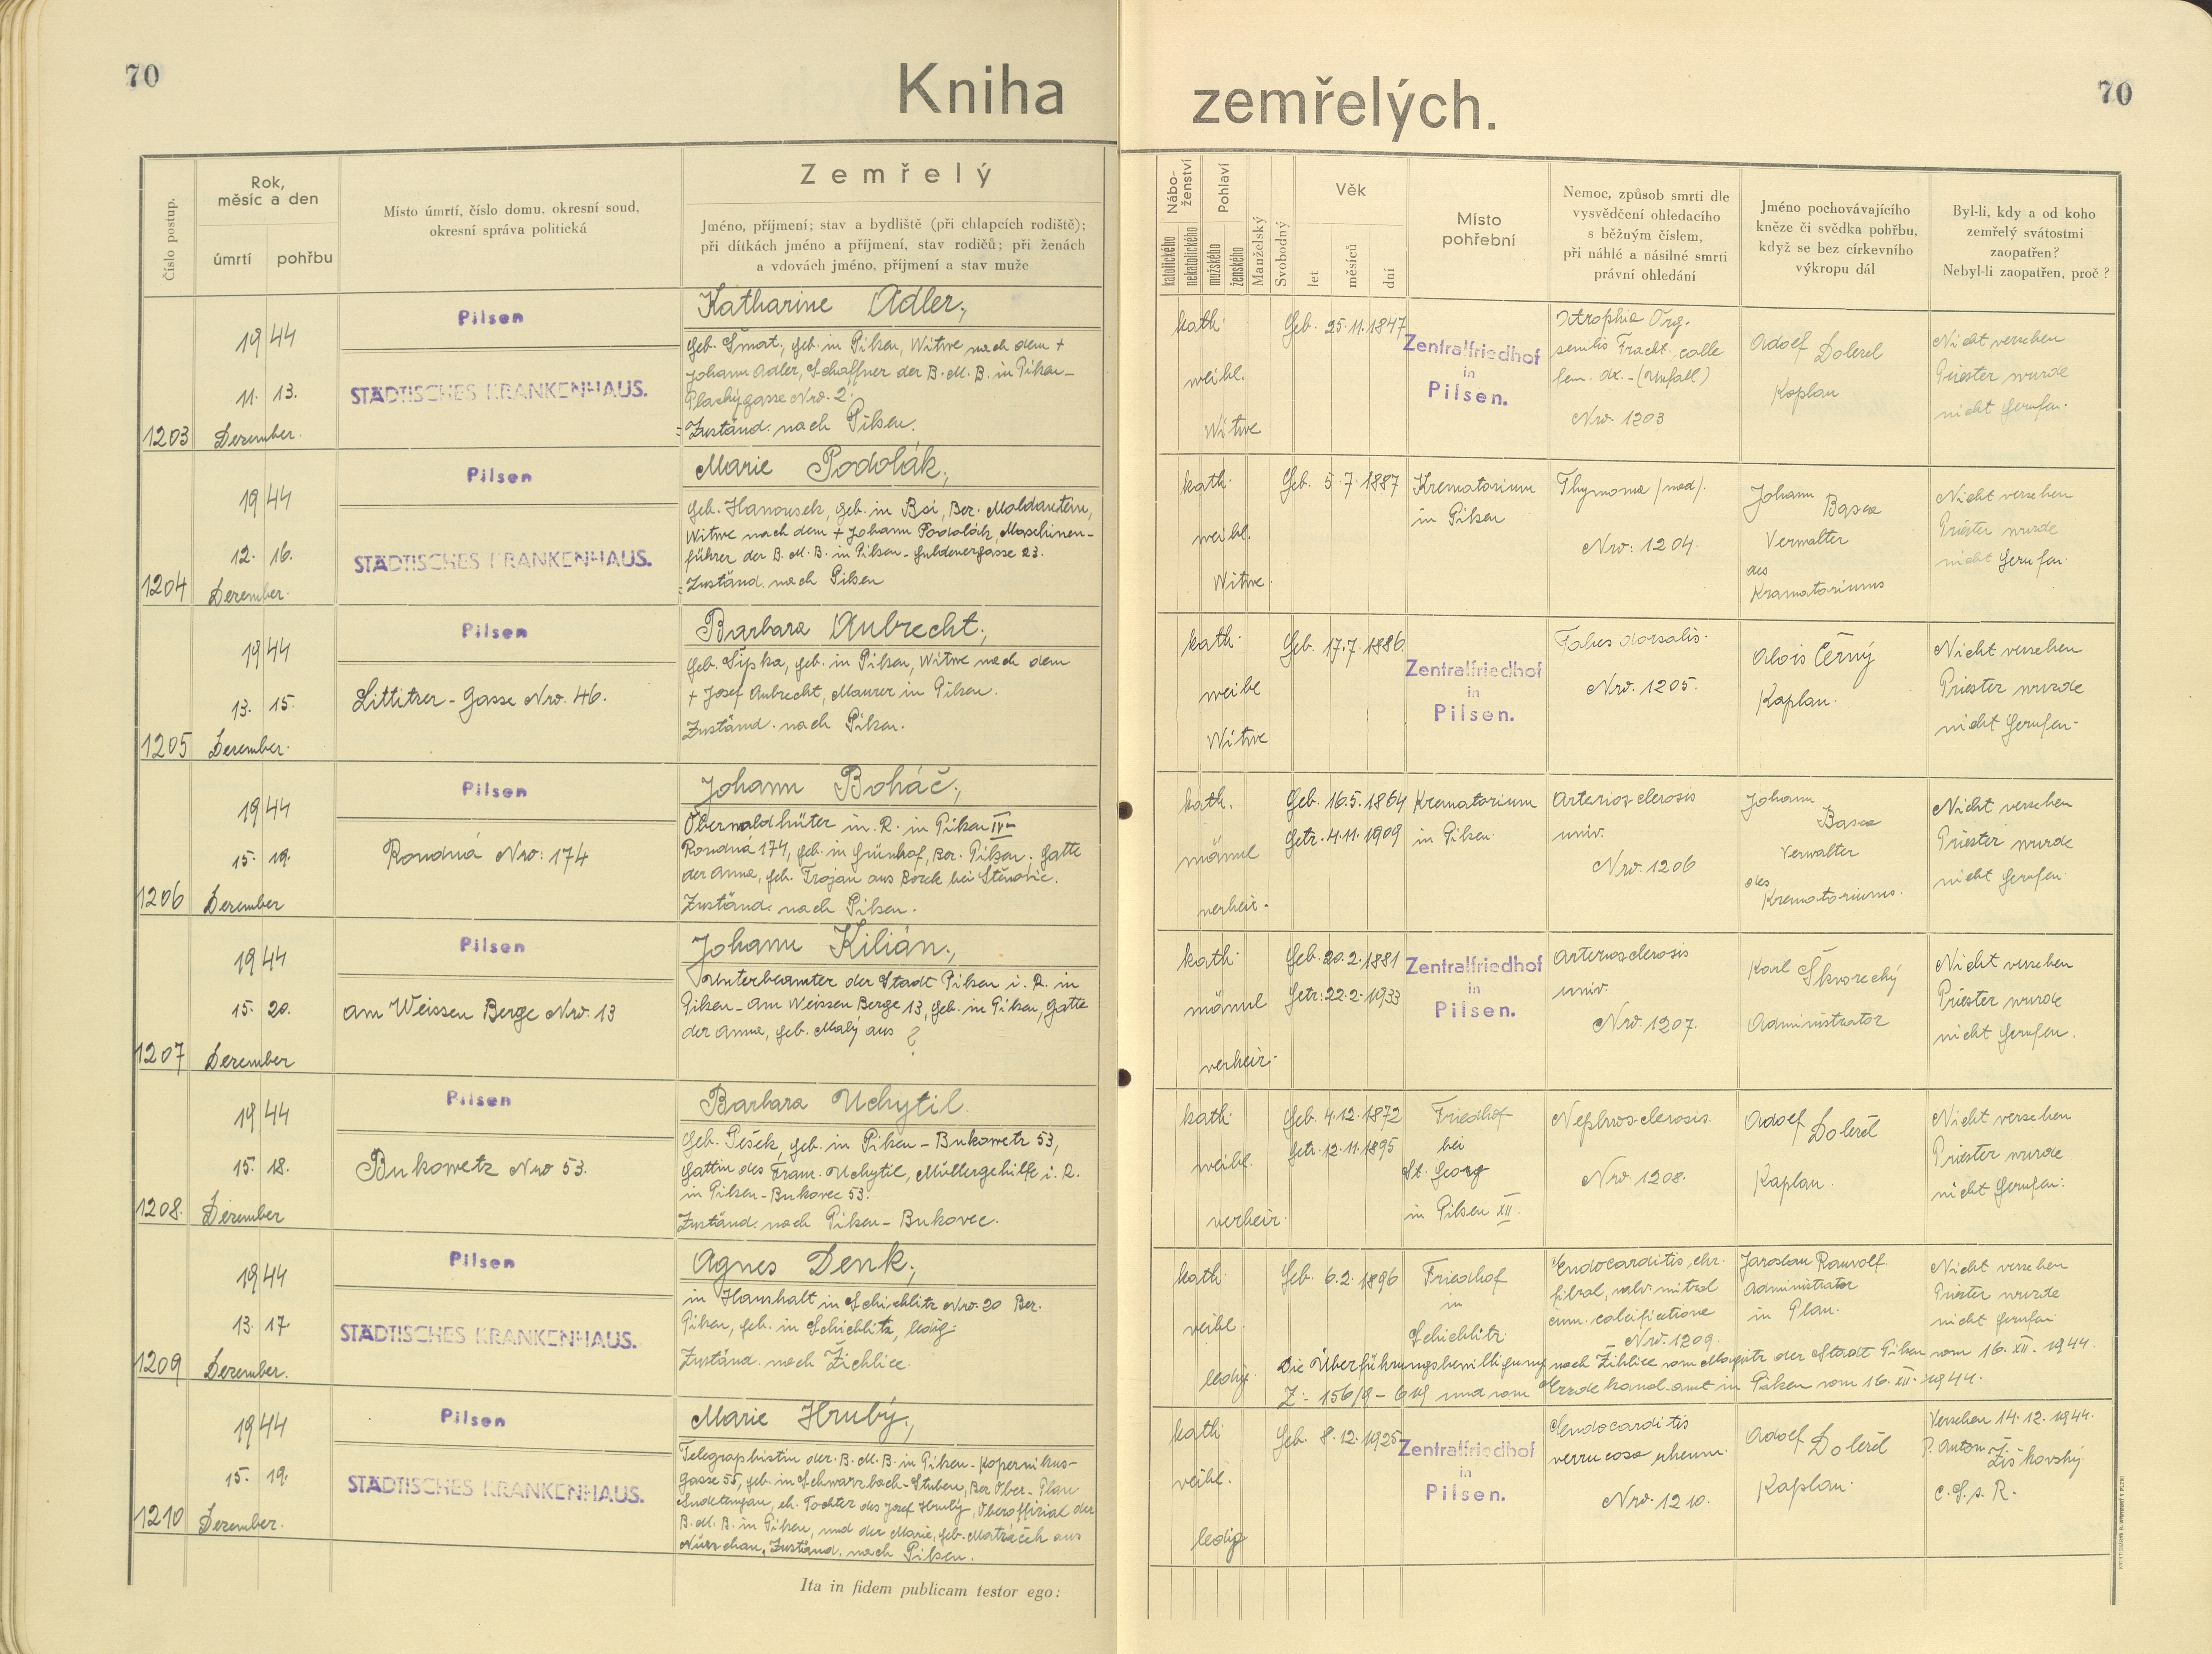 70
Kniha zemřelých.
70
Číslo postup.
Rok,
měsíc a den
úmrtí
pohřbu
Místo úmrtí, číslo domu, okresní soud,
okresní správa politická
Zemřelý
Jméno, příjmení; stav a bydliště (při chlapcích rodiště);
při dítkách jméno a příjmení, stav rodičů; při ženách
a vdovách jméno, příjmení a stav muže
Nábo-
ženství
katolického
nekatolického
Pohlaví
mužského
ženského
Manželský
Svobodný
Věk
let
měsíců
dní
Místo
pohřební
Nemoc, způsob smrti dle
vysvědčení ohledacího
s běžným číslem,
při náhlé a násilné smrti
právní ohledání
Jméno pochovávajícího
kněze či svědka pohřbu,
když se bez církevního
výkropu dál
Byl-li, kdy a od koho
zemřelý svátostmi
zaopatřen?
Nebyl-li zaopatřen, proč?
1203
1944
11. 13.
Dezember.
Pilsen
STÄDTISCHES KRANKENHAUS.
Katharine Adler,
geb. Šmat, geb. in Pilsen, Witwe nach dem +
Johann Adler, Schaffner der B. M. B. in Pilsen-
Plachýgasse Nro. 2.
Zuständ. nach Pilsen.
kath.
weibl.
Witwe
Geb. 25.11.1847
Zentralfriedhof
in
Pilsen.
Atrophia Org.
senilis Fract. colle
fem. dx. - (Unfall)
Nro. 1203
Adolf Doležel
Kaplan
Nicht versehen
Priester wurde
nicht gerufen.
1204
1944
12. 16.
Dezember.
Pilsen
STÄDTISCHES KRANKENHAUS.
Marie Podolák,
geb. Hanousek, geb. in Bsi, Bez. Moldautein,
Witwe nach dem + Johann Podolák, Maschinen-
führer der B. M. B. in Pilsen - Guldenergasse 23.
Zuständ. nach Pilsen
kath.
weibl.
Witwe.
Geb. 5.7.1887
Krematorium
in Pilsen
Thymoma /med/.
Nro: 1204.
Johann
Verwalter
des
Kramatoriums
Nicht versehen
Priester wurde
nicht gerufen.
1205
1944
13. 15.
Dezember.
Pilsen
Littitzer-Gasse Nro. 46.
Barbara Aubrecht,
geb. Šipka, geb. in Pilsen, Witwe nach dem
+ Josef Aubrecht, Maurer in Pilsen.
Zuständ. nach Pilsen.
kath.
weibl
Witwe
Geb. 17.7.1886
Zentralfriedhof
in
Pilsen.
Tabes dorsalis.
Nro. 1205.
Alois Černý
Kaplan.
Nicht versehen
Priester wurde
nicht gerufen.
1206
1944
15. 19.
Dezember
Pilsen
Roudná Nro: 174
Johann Boháč,
Oberwaldhüter in. R. in Pilsen IV-
Roudná 174, geb. in Grünhof, Bez. Pilsen; Gatte
der Anna, geb. Trojan aus Borek bei Štěnovic.
Zuständ. nach Pilsen.
kath.
männl
verheir.
Geb. 16.5.1864
Getr. 4.11.1909
Krematorium
in Pilsen.
Arteriosclerosis
univ.
Nro. 1206
Johann
Verwalter
des
Krematoriums.
Nicht versehen
Priester wurde
nicht gerufen.
1207
1944
15. 20.
Dezember
Pilsen
am Weissen Berge Nro. 13
Johann Kilián,
Unterbeamter der Stadt Pilsen i. R. in
Pilsen - Am Weissen Berge 13, geb. in Pilsen, Gatte
der Anna, geb. Malý aus ?
kath.
männl
verheir.
Geb. 20.2.1881
Getr. 22.2.1933
Zentralfriedhof
in
Pilsen.
Arteriosclerosis
univ.
Nro. 1207.
Karl Škvorecký
Administrator
Nicht versehen
Priester wurde
nicht gerufen.
1208.
1944
15. 18.
Dezember
Pilsen
Bukowetz Nro 53.
Barbara Uchytil.
geb. Pešek, geb. in Pilsen - Bukowetz 53,
Gattin des Franz. Uchytil, Müllergehilfe i. R.
in Pilsen-Bukovec 53.
Zuständ. nach Pilsen-Bukovec.
kath.
weibl.
verheir.
Geb. 4.12.1872
Getr. 12.11.1895
Friedhof
bei
St. Georg
in Pilsen XII.
Nephrosclerosis.
Nro 1208.
Adolf Doležel
Kaplan.
Nicht versehen
Priester wurde
nicht gerufen.
1209
1944
13. 17
Dezember.
Pilsen
STÄDTISCHES KRANKENHAUS.
Agnes Denk,
in Haushalt in Schichlitz Nro. 20 Bez.
Pilsen, geb. in Schichlitz, ledig.
Zuständ. nach Žichlice.
kath.
weibl.
ledig
Geb. 6.2.1896
Friedhof
in
Schichlitz.
Endocarditis, chr.
fibral, valv. mitral
cum. calcificatione
Nro. 1209.
Jaroslav Rauvolf
Administrator
in Plan.
Nicht versehen
Priester wurde
nicht gerufen
Die Überführungsbewilligung nach Žihlice vom Magistr der Stadt Pilsen vom 16. XII. 1944.
Z:- 156/9 - und vom amt in Pilsen vom 16. XII. 1944.
1210
1944
15. 19.
Dezember.
Pilsen
STÄDTISCHES KRANKENHAUS.
Marie Hrubý,
Telegraphistin der B. M. B. in Pilsen - Kopernikus-
gasse 55, geb. in Schwarzbach-Stuben, Bez Ober-Plan
Sudetengau, eh. Tochter des Josef Hrubý, Oberoffizial der
B. M. B. in Pilsen, und der Marie, geb. aus
Nürschan. Zuständ. nach Pilsen.
kath
weibl.
ledig
Geb. 8.12.1925
Zentralfriedhof
in
Pilsen.
Endocarditis
verrucosa rheum.
Nro. 1210.
Adolf Doležel
Kaplan.
Versehen 14.12.1944.
P. Anton Žiškovský
C. S. s. R.
Ita in fidem publicam testor ego: